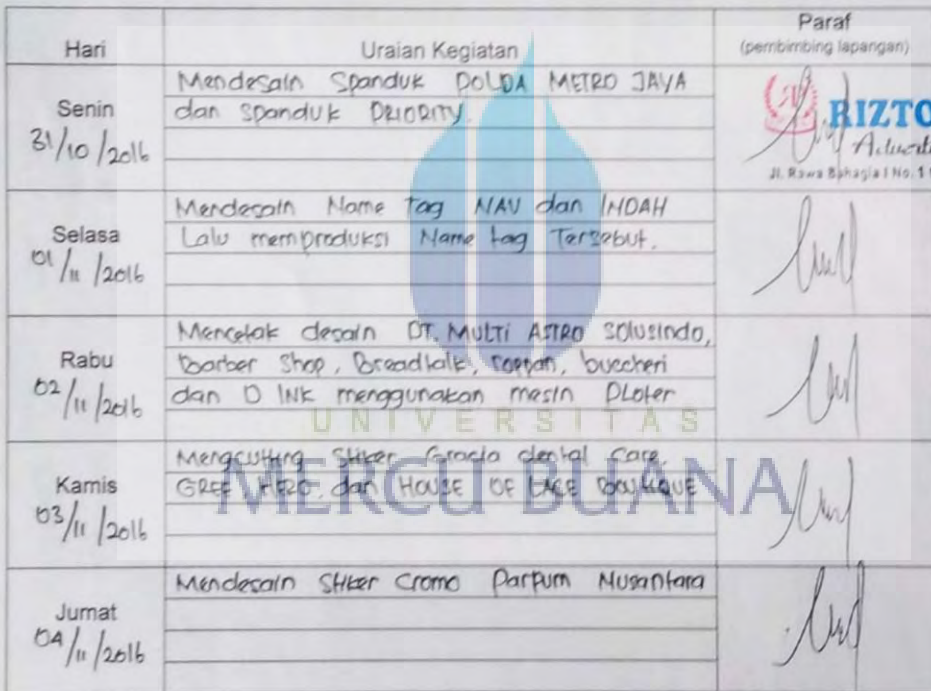 Hari Uraian Kegiatan Paraf
(pembimbing lapangan)
Senin
31/10/2016
Mendesain Spanduk POLDA METRO JAYA
dan Spanduk PRIORITY.
RIZTO
Jl. Rawa Bahagia I No. 1
Selasa
01/11/2016
Mendesain Name tag NAV dan INDAH
Lalu memproduksi Name tag Tersebut.
Rabu
02/11/2016
Mencetak desain PT. MULTI ASTRO SOLUSINDO,
Barber Shop, Breadtalk, Toppan, buccheri
dan D INK menggunakan mesin PLoter
UNIVERSITAS
MERCU BUANA
Kamis
03/11/2016
Mengcutting Stiker Gracia dental Care,
GREE HERO dan HOUSE OF LACE BOUTIQUE
Jumat
04/11/2016
Mendesain Stiker Cromo Parpum Nusantara